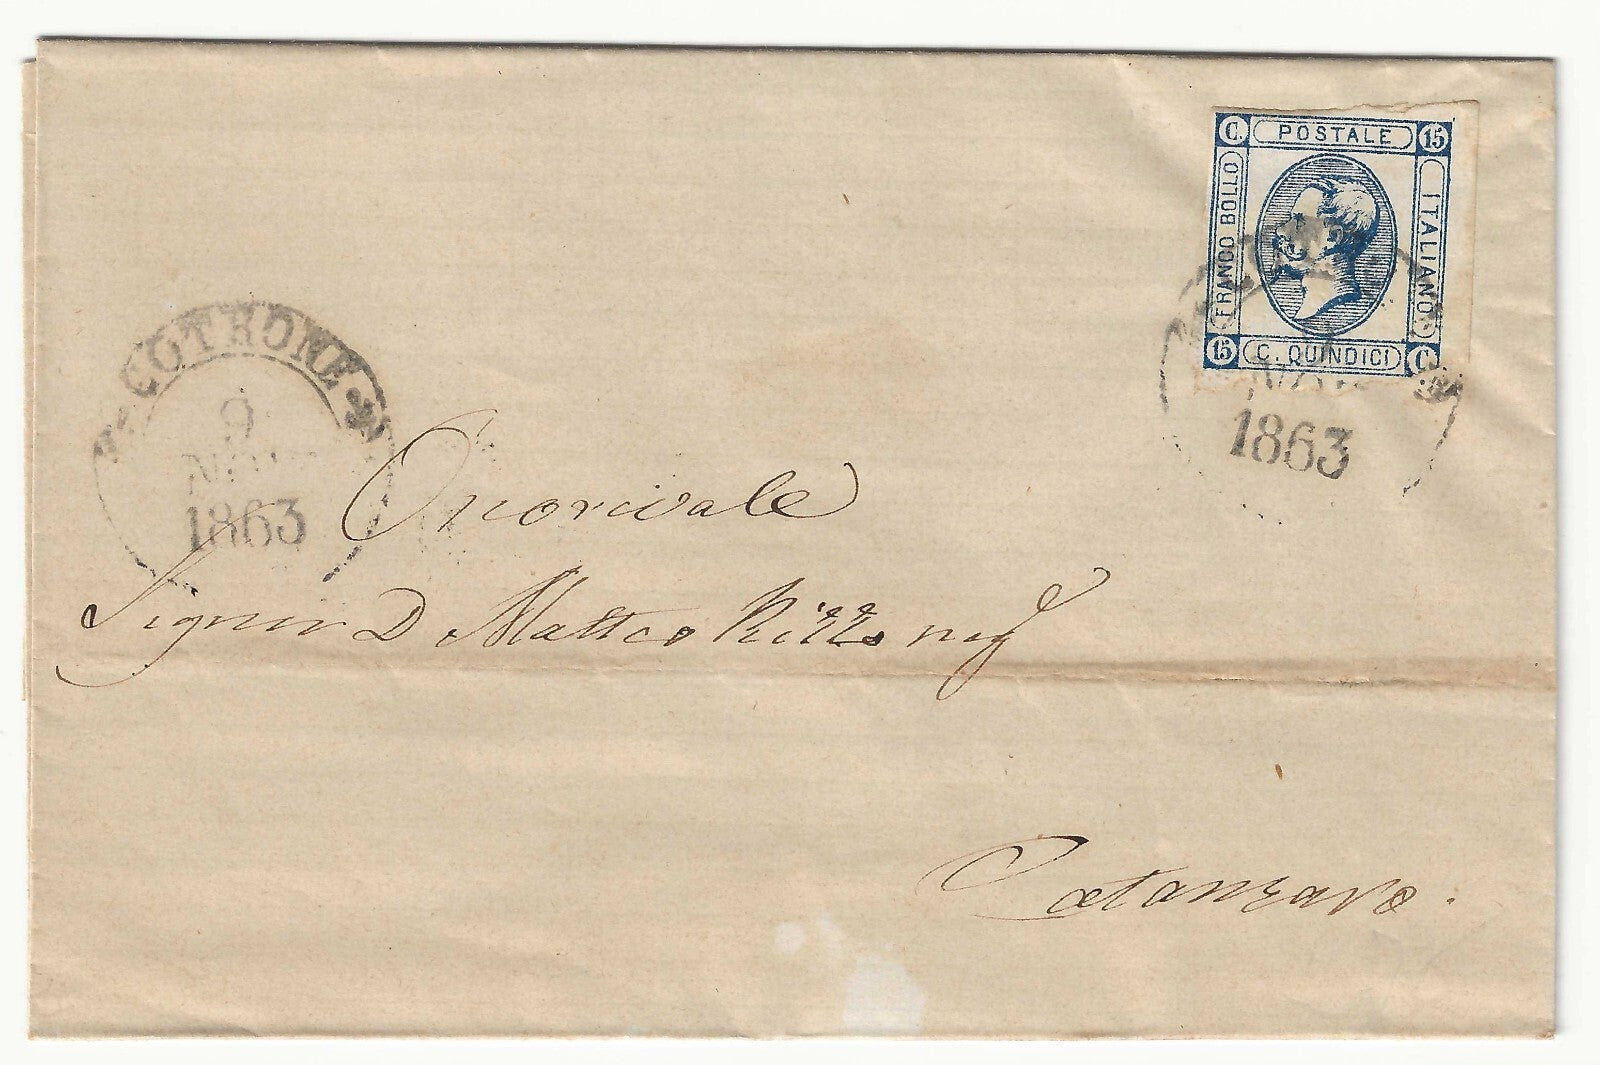 C. POSTALE 15
FRANCO BOLLO
ITALIANO
15 C. QUINDICI C.
1863
COTRONE
9
1863
Onorevale
Signor D Matteo Rizzo
Catanzaro.